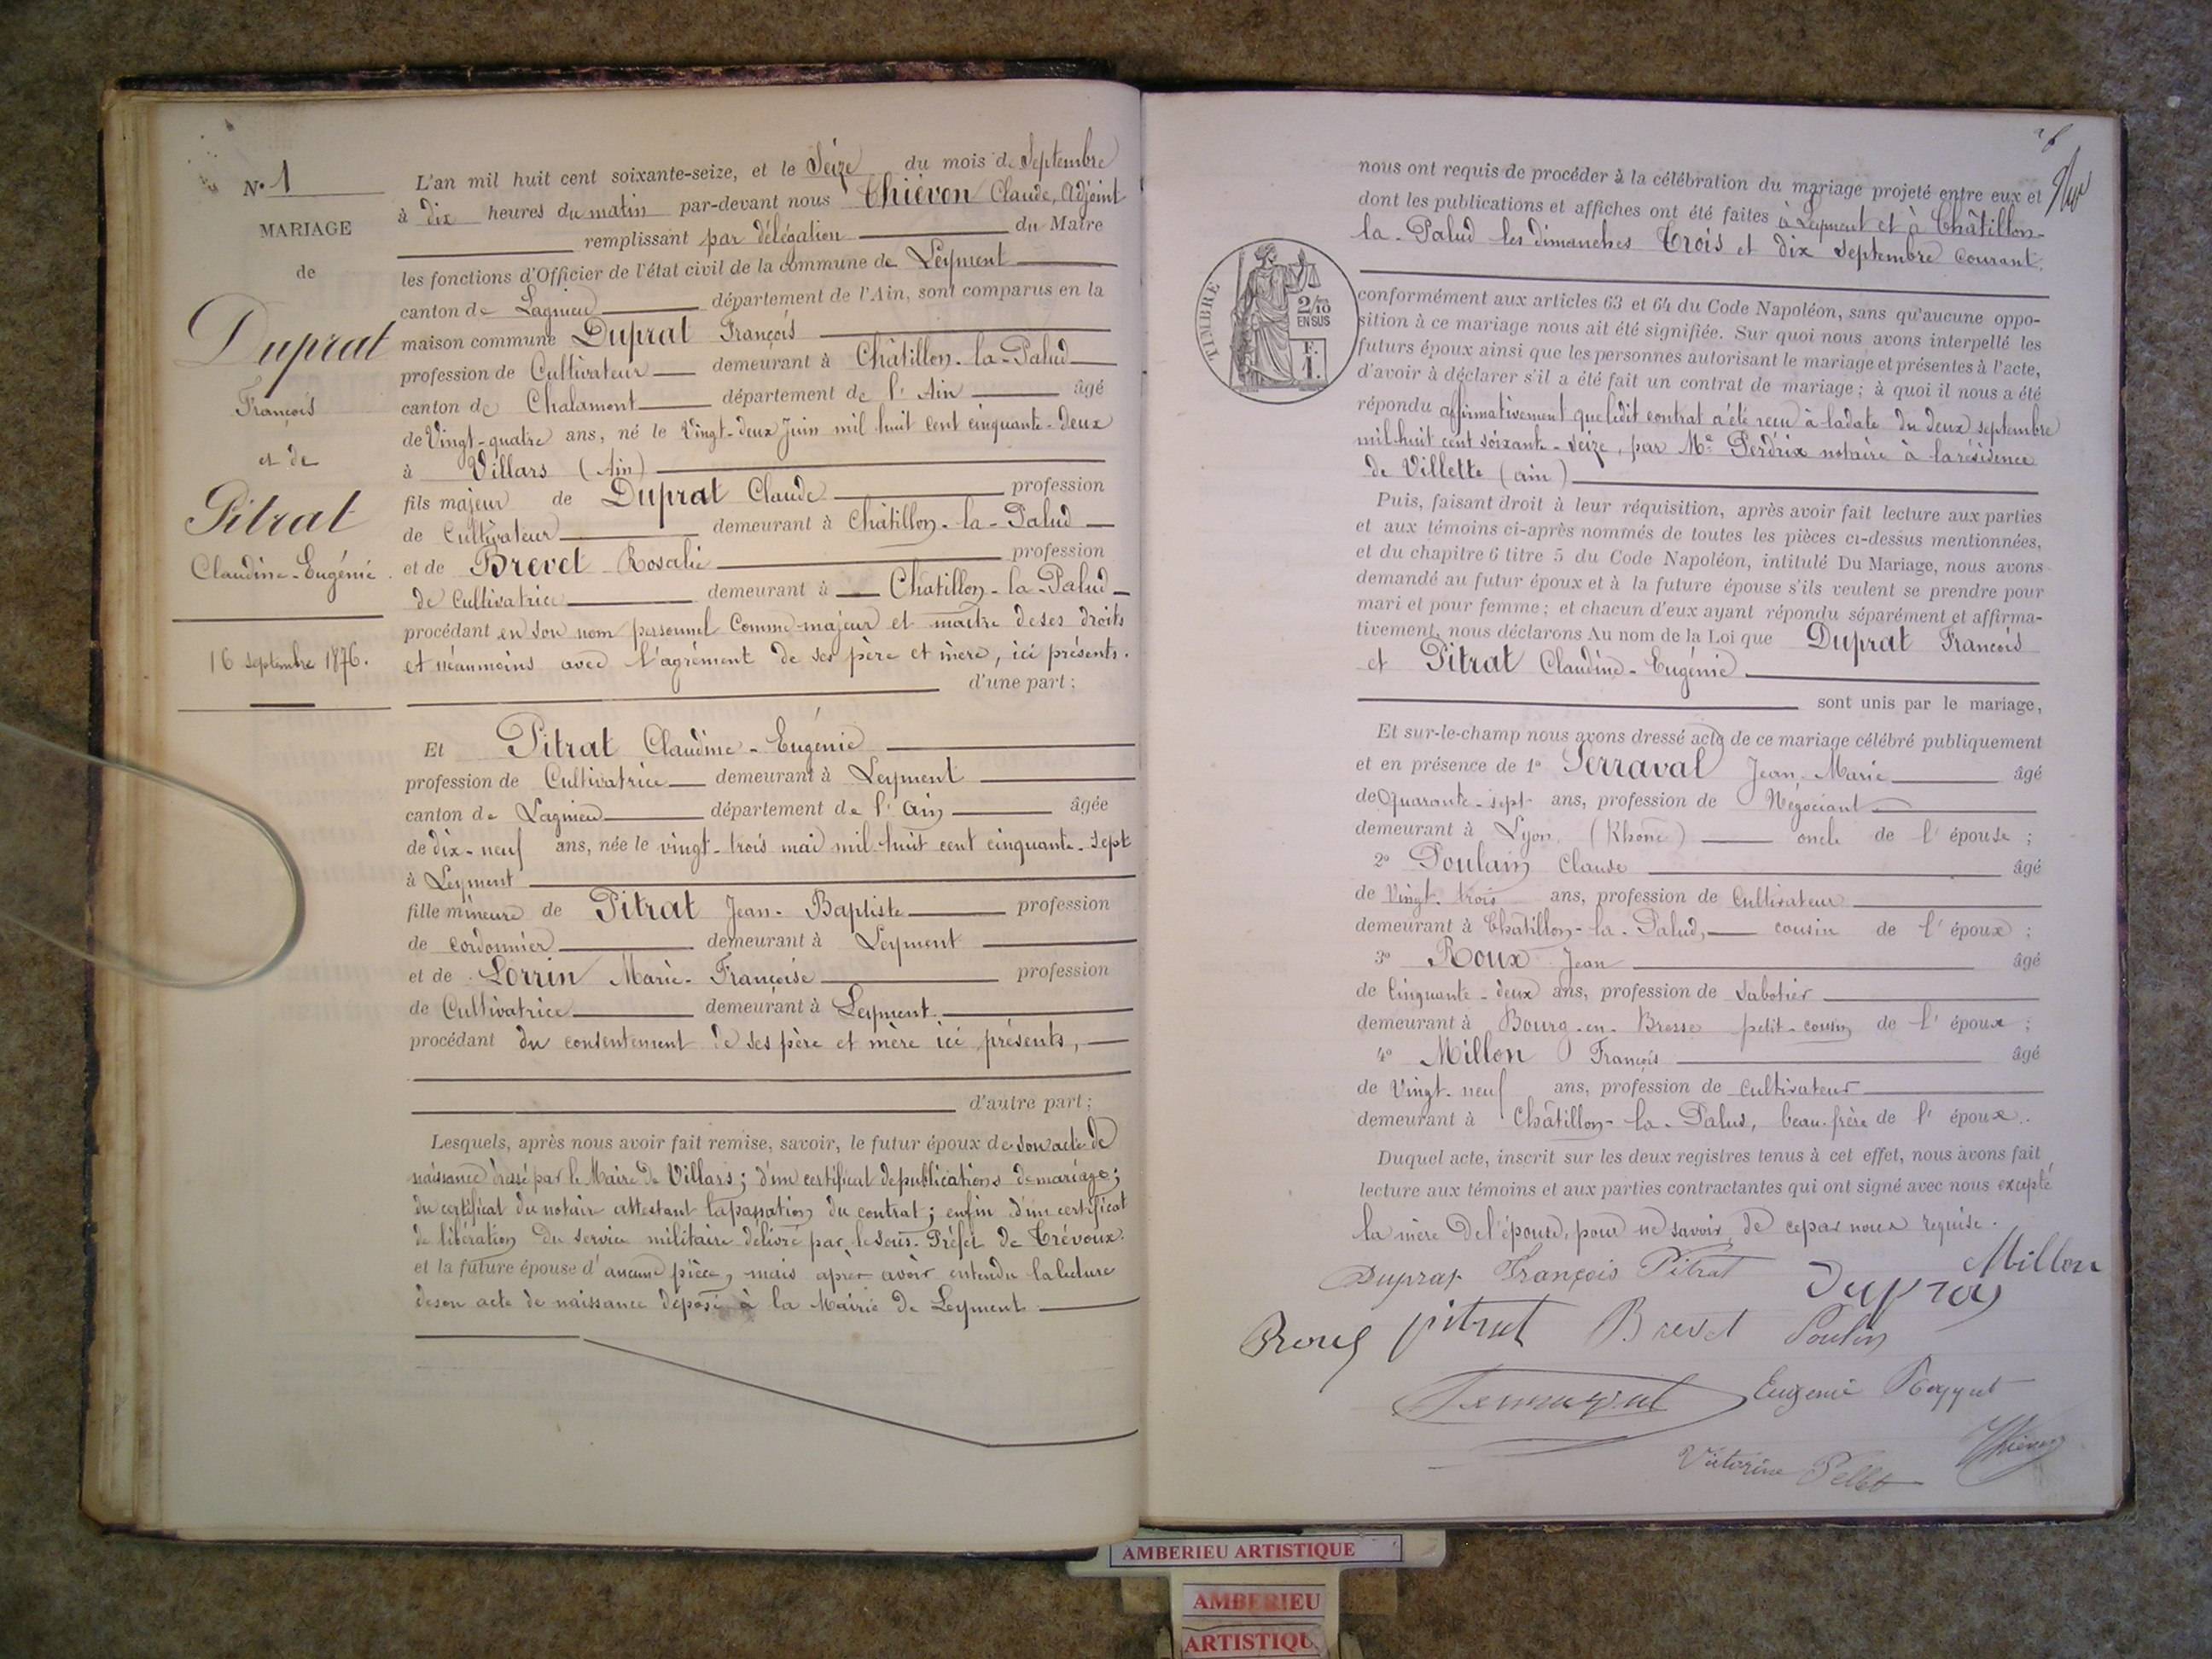 N° 1
MARIAGE
de
Duprat
François
et de
Pitrat
Claudine-Eugénie
16 septembre 1876.
L'an mil huit cent soixante-seize, et le Seize du mois de Septembre
à dix heures du matin par-devant nous Thiévon Claude, Adjoint
remplissant par délégation du Maire
les fonctions d'Officier de l'état civil de la commune de Leyment
canton de Lagnieu département de l'Ain, sont comparus en la
maison commune Duprat François
profession de Cultivateur demeurant à Châtillon-la-Palud
canton de Chalamont département de l'Ain âgé
de Vingt-quatre ans, né le Vingt-deux Juin mil huit cent cinquante-deux
à Villars (Ain)
fils majeur de Duprat Claude profession
de Cultivateur demeurant à Châtillon-la-Palud
et de Brevet Rosalie profession
de Cultivatrice demeurant à Chatillon-la-Palud
procédant en son nom personnel comme majeur et maître de ses droits
et néanmoins avec l'agrément de ses père et mère, ici présents.
d'une part;
Et Pitrat Claudine-Eugénie
profession de Cultivatrice demeurant à Leyment
canton de Lagnieu département de l'Ain âgée
de dix-neuf ans, née le vingt-trois mai mil huit cent cinquante-sept
à Leyment
fille mineure de Pitrat Jean-Baptiste profession
de cordonnier demeurant à Leyment
et de Lorrin Marie-Françoise profession
de Cultivatrice demeurant à Leyment
procédant du consentement de ses père et mère ici présents,
d'autre part;
Lesquels, après nous avoir fait remise, savoir, le futur époux de son acte de
naissance dressé par le Maire de Villars; d'un certificat de publications de mariage;
du certificat du notaire attestant la passation du contrat; enfin d'un certificat
de libération du service militaire délivré par le sous-Préfet de Trévoux.
et la future épouse d'aucune pièce, mais après avoir entendu la lecture
de son acte de naissance déposé à la Mairie de Leyment
nous ont requis de procéder à la célébration du mariage projeté entre eux et
dont les publications et affiches ont été faites à Leyment et à Châtillon-
la-Palud les dimanches Trois et dix septembre courant.
TIMBRE
2/10
EN SUS
F.
1.
conformément aux articles 63 et 64 du Code Napoléon, sans qu'aucune oppo-
sition à ce mariage nous ait été signifiée. Sur quoi nous avons interpellé les
futurs époux ainsi que les personnes autorisant le mariage et présentes à l'acte,
d'avoir à déclarer s'il a été fait un contrat de mariage; à quoi il nous a été
répondu affirmativement que ledit contrat a été reçu à la date du deux septembre
mil huit cent soixante-seize, par Me Perdrix notaire à la résidence
de Villette (ain)
Puis, faisant droit à leur réquisition, après avoir fait lecture aux parties
et aux témoins ci-après nommés de toutes les pièces ci-dessus mentionnées,
et du chapitre 6 titre 5 du Code Napoléon, intitulé Du Mariage, nous avons
demandé au futur époux et à la future épouse s'ils veulent se prendre pour
mari et pour femme; et chacun d'eux ayant répondu séparément et affirma-
tivement, nous déclarons Au nom de la Loi que Duprat François
et Pitrat Claudine-Eugénie
sont unis par le mariage,
Et sur-le-champ nous avons dressé acte de ce mariage célébré publiquement
et en présence de 1° Serraval Jean-Marie âgé
de Quarante-sept ans, profession de Négociant
demeurant à Lyon, (Rhône) oncle de l'épouse;
2° Poulain Claude âgé
de Vingt-trois ans, profession de Cultivateur
demeurant à Chatillon-la-Palud, cousin de l'époux;
3° Roux Jean âgé
de Cinquante-deux ans, profession de Sabotier
demeurant à Bourg-en-Bresse petit-cousin de l'époux;
4° Millon François âgé
de Vingt-neuf ans, profession de cultivateur
demeurant à Châtillon-la-Palud, beau-frère de l'époux.
Duquel acte, inscrit sur les deux registres tenus à cet effet, nous avons fait
lecture aux témoins et aux parties contractantes qui ont signé avec nous excepté
la mère de l'épouse, pour ne savoir de ce par nous requise.
Duprat François Pitrat Duprat Millon
Roux pitrat Brevet Poulin
Serraval Eugénie
Victorine Pellet Thiévon
AMBERIEU ARTISTIQUE
AMBERIEU
ARTISTIQU